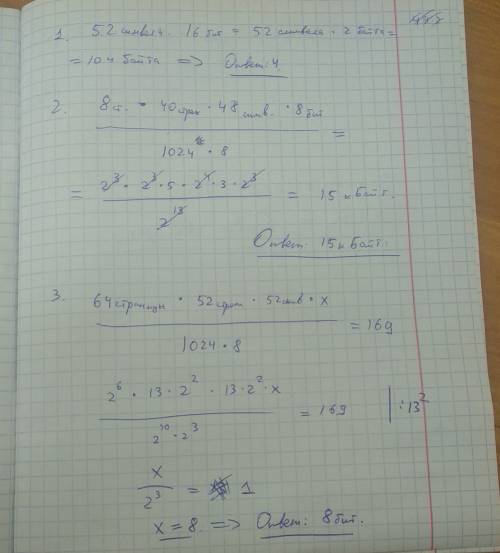 1. 52 символа · 16 бит = 52 символа · 2 байта =
= 104 байта => Ответ: 4
2. 8 ст. · 40 строк · 48 симв. · 8 бит
1024 · 8 =
= 2³ · 2³ · 5 · 2⁴ · 3 · 2³
2¹³ = 15 кбайт.
Ответ: 15 кбайт.
3. 64 страницы · 52 строк · 52 симв · x
1024 · 8 = 169
2⁶ · 13 · 2² · 13 · 2² · x
2¹⁰ · 2³ = 169 | : 13²
x
2³ = 1
x = 8 => Ответ: 8 бит.